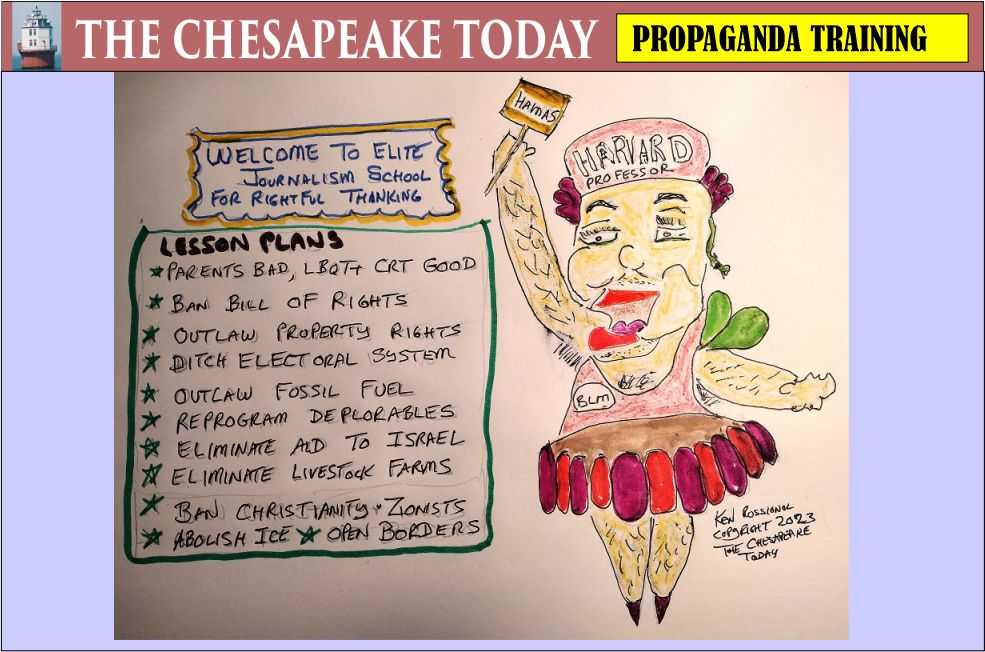 THE CHESAPEAKE TODAY
PROPAGANDA TRAINING
WELCOME TO ELITE
JOURNALISM SCHOOL
FOR RIGHTFUL THANKING
HAMAS
HARVARD
PROFESSOR
LESSON PLANS
★ PARENTS BAD, LBQT+ CRT GOOD
★ BAN BILL OF RIGHTS
★ OUTLAW PROPERTY RIGHTS
★ DITCH ELECTORAL SYSTEM
★ OUTLAW FOSSIL FUEL
★ REPROGRAM DEPLORABLES
★ ELIMINATE AID TO ISRAEL
★ ELIMINATE LIVESTOCK FARMS
★ BAN CHRISTIANITY + ZIONISTS
★ ABOLISH ICE ★ OPEN BORDERS
BLM
KEN ROSSIGNOL
COPYRIGHT 2023
THE CHESAPEAKE
TODAY